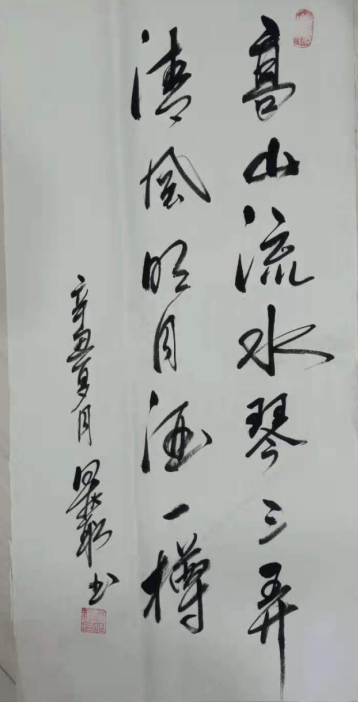 高山流水琴三弄
清风明月酒一樽
辛丑夏月 书